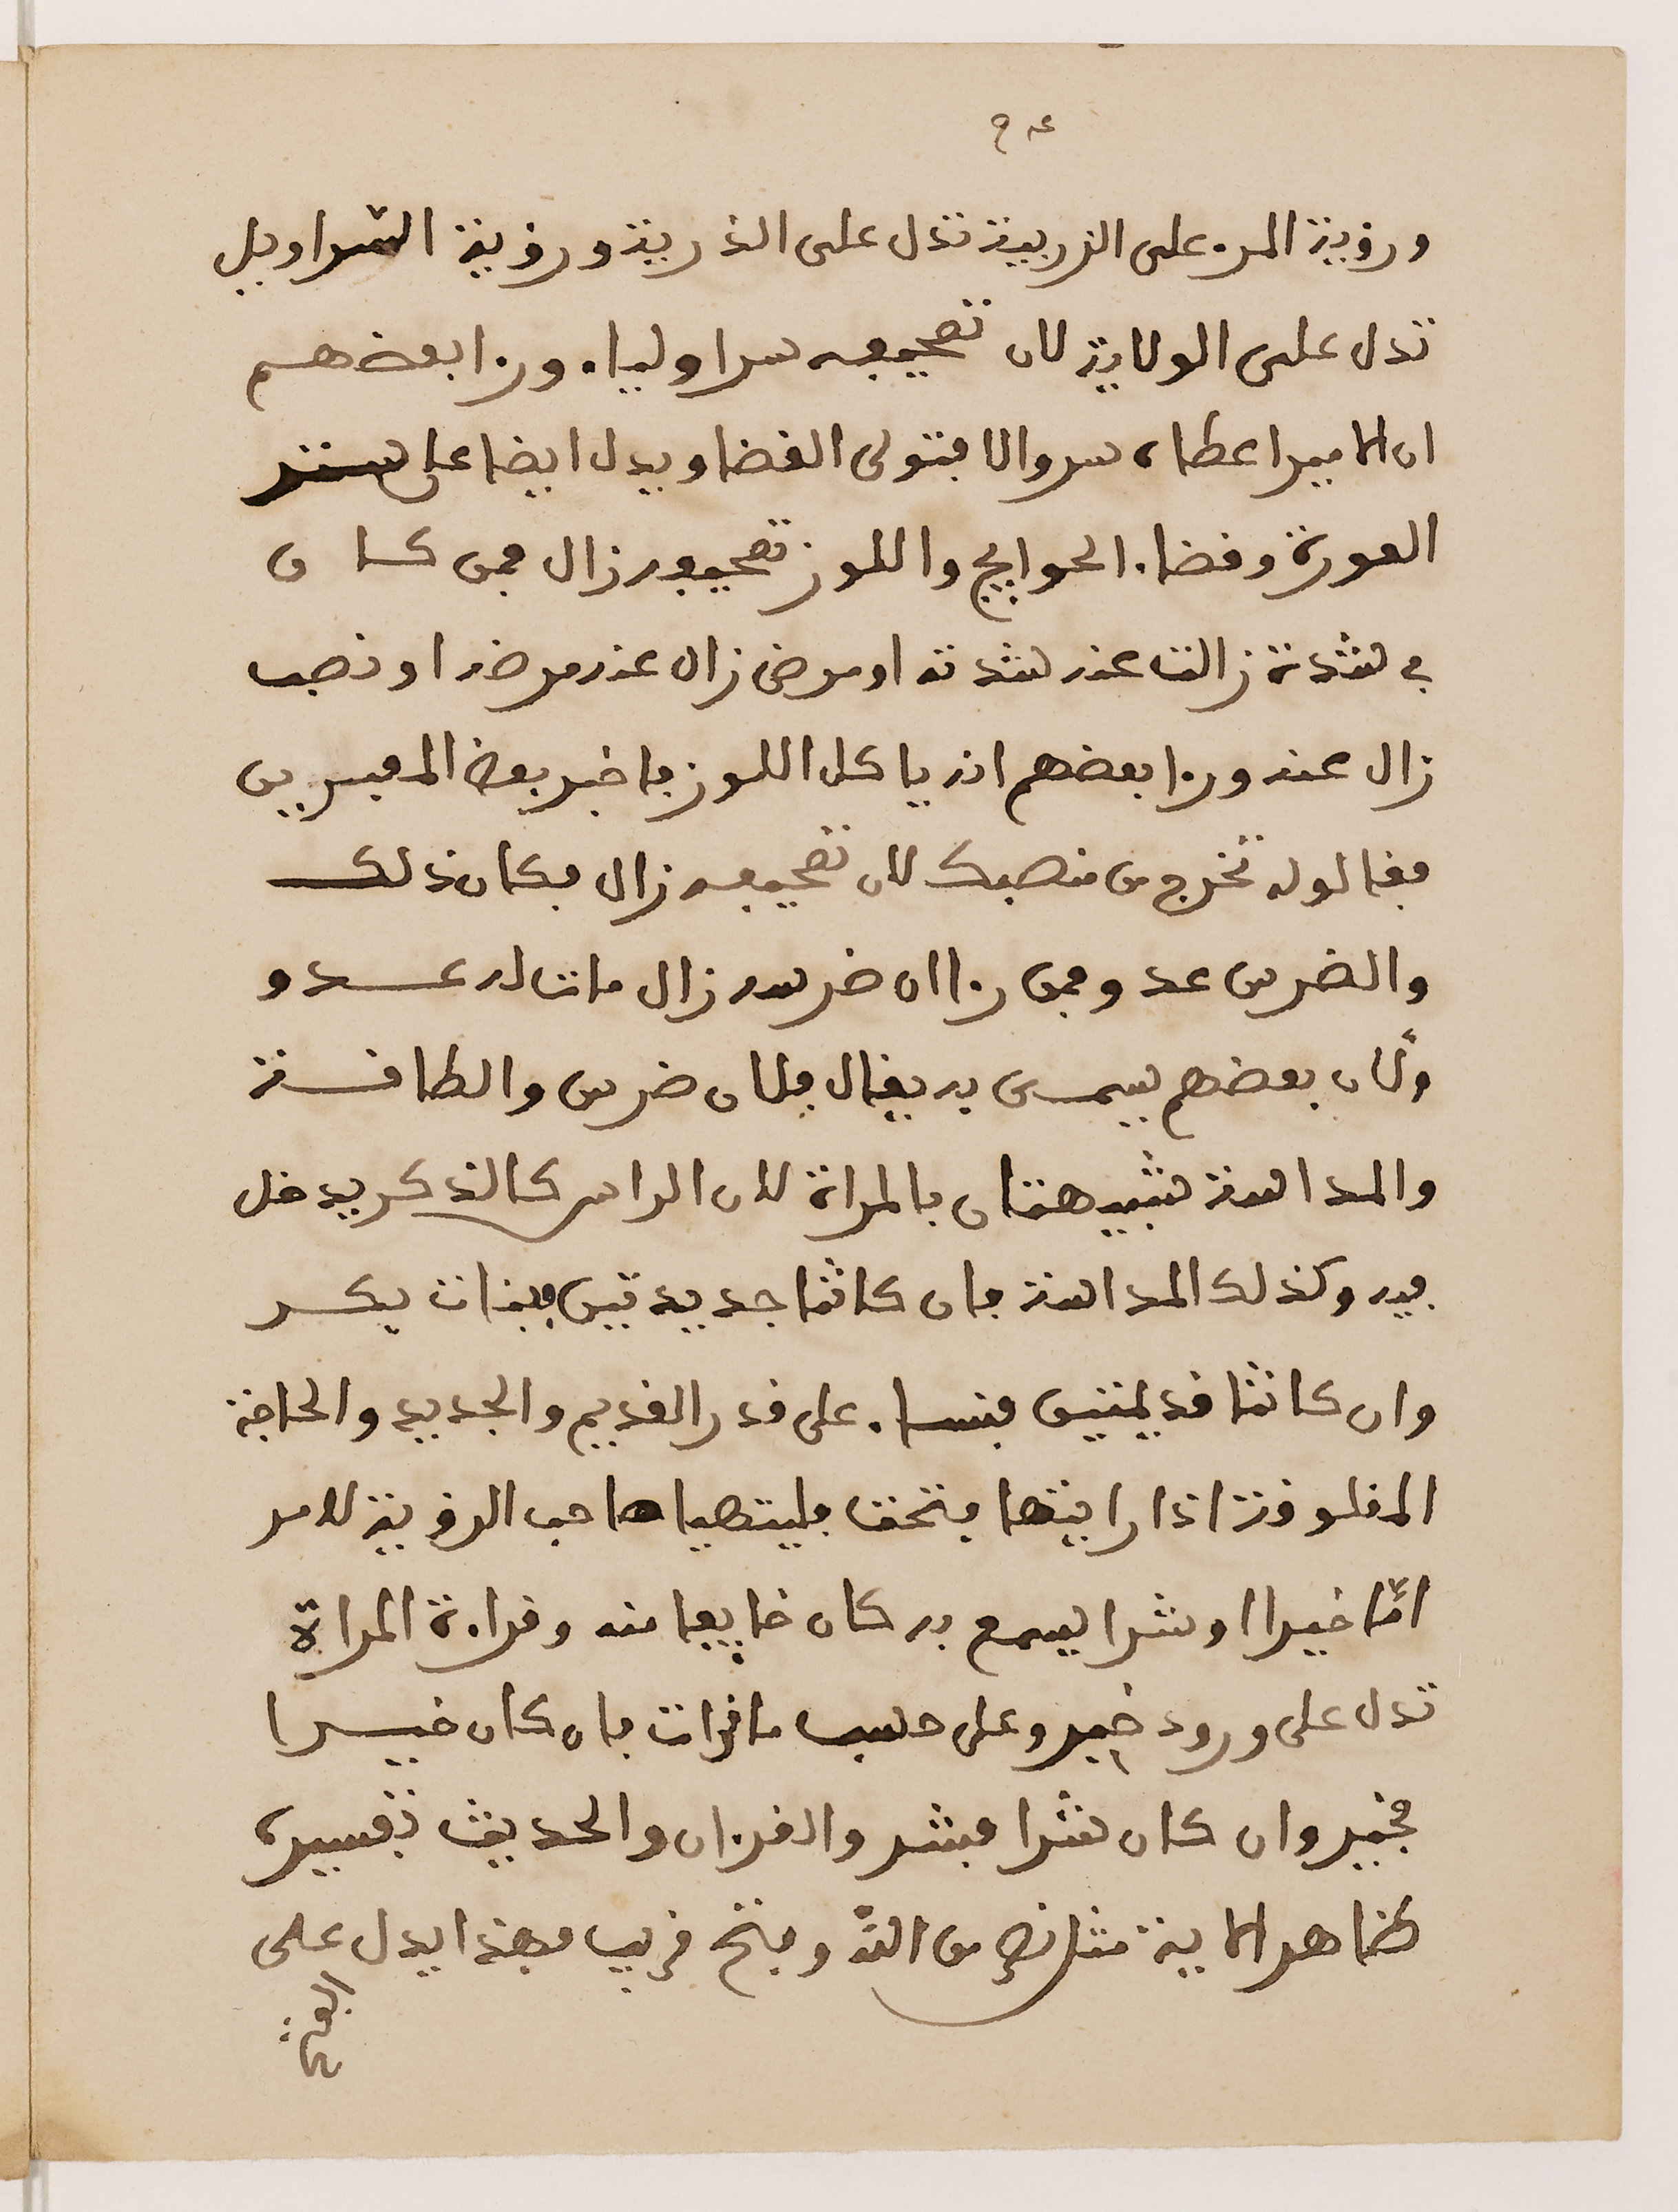 ورؤية المرء على الزربية تدل على الذرية ورؤية السراويل
تدل على الولاية لان تصحيفه سراولياء ورءا بعضهم
ان الامير اعطاه سروالا فتولى القضا ويدل ايضا على ستر
العورة وقضاء الحوايج واللوز تصحيفه زال فمن كان
في شدة زالت عنه شدته او مرض زال عنه مرضه او نصب
زال عنه ورءا بعضهم انه ياكل اللوز فاخبر بعض المعبرين
فقال له تخرج من منصبك لان تصحيفه زال فكان ذلك
والضرس عدو فمن رءا ان ضرسه زال مات له عدو
ولان بعضهم يسمى به يقال فلان ضرس والطاقية
والمداسة شبيهتان بالمراة لان الراس كالذكر يدخل
فيه وكذلك المداسة فان كانتا جديدتين فبنات بكر
وان كانتا قديمتين فنساء على قدر القديم والجديد والحاجة
المغلوقة اذا رايتها فتحت فليتهيا صاحب الرؤية لامر
امّا خيرا او شرا يسمع به كان خايفا منه وقراءة المراة
تدل على ورود خبر وعلى حسب ما قرات فان كان خيرا
فخير وان كان شرا فشر والقرءان والحديث تفسيره
كظاهر الاية مثل نصر من الله وفتح قريب فهذا يدل على
الفتح